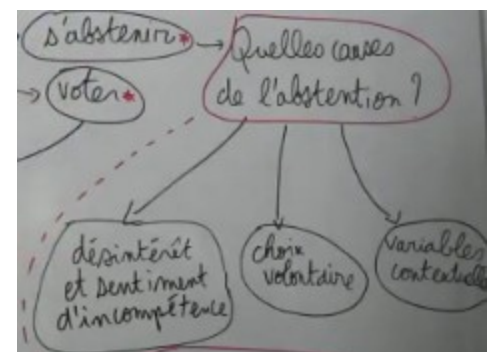 s'abstenir*
Quelles causes
de l'abstention ?
voter*
désintérêt
et sentiment
d'incompétence
choix
volontaire
variables
contextuelles